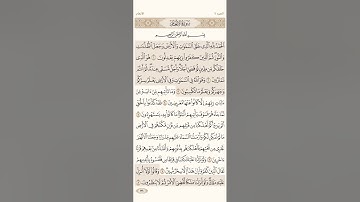 سُورَةُ الأَنعَامِ
بِسْمِ اللَّهِ الرَّحْمَٰنِ الرَّحِيمِ
الْحَمْدُ لِلَّهِ الَّذِي خَلَقَ السَّمَاوَاتِ وَالْأَرْضَ وَجَعَلَ الظُّلُمَاتِ
وَالنُّورَ ثُمَّ الَّذِينَ كَفَرُوا بِرَبِّهِمْ يَعْدِلُونَ ١
هُوَ الَّذِي خَلَقَكُم مِّن طِينٍ ثُمَّ قَضَىٰ أَجَلًا وَأَجَلٌ مُّسَمًّى عِندَهُ ثُمَّ أَنتُمْ
تَمْتَرُونَ ٢ وَهُوَ اللَّهُ فِي السَّمَاوَاتِ وَفِي الْأَرْضِ يَعْلَمُ سِرَّكُمْ
وَجَهْرَكُمْ وَيَعْلَمُ مَا تَكْسِبُونَ ٣ وَمَا تَأْتِيهِم مِّنْ آيَةٍ مِّنْ
آيَاتِ رَبِّهِمْ إِلَّا كَانُوا عَنْهَا مُعْرِضِينَ ٤ فَقَدْ كَذَّبُوا بِالْحَقِّ
لَمَّا جَاءَهُمْ فَسَوْفَ يَأْتِيهِمْ أَنبَاءُ مَا كَانُوا بِهِ يَسْتَهْزِءُونَ ٥
أَلَمْ يَرَوْا كَمْ أَهْلَكْنَا مِن قَبْلِهِم مِّن قَرْنٍ مَّكَّنَّاهُمْ فِي الْأَرْضِ
مَا لَمْ نُمَكِّن لَّكُمْ وَأَرْسَلْنَا السَّمَاءَ عَلَيْهِم مِّدْرَارًا وَجَعَلْنَا الْأَنْهَارَ
تَجْرِي مِن تَحْتِهِمْ فَأَهْلَكْنَاهُم بِذُنُوبِهِمْ وَأَنشَأْنَا مِن بَعْدِهِمْ قَرْنًا
آخَرِينَ ٦ وَلَوْ نَزَّلْنَا عَلَيْكَ كِتَابًا فِي قِرْطَاسٍ فَلَمَسُوهُ بِأَيْدِيهِمْ
لَقَالَ الَّذِينَ كَفَرُوا إِنْ هَٰذَا إِلَّا سِحْرٌ مُّبِينٌ ٧ وَقَالُوا لَوْلَا أُنزِلَ
عَلَيْهِ مَلَكٌ وَلَوْ أَنزَلْنَا مَلَكًا لَّقُضِيَ الْأَمْرُ ثُمَّ لَا يُنظَرُونَ ٨